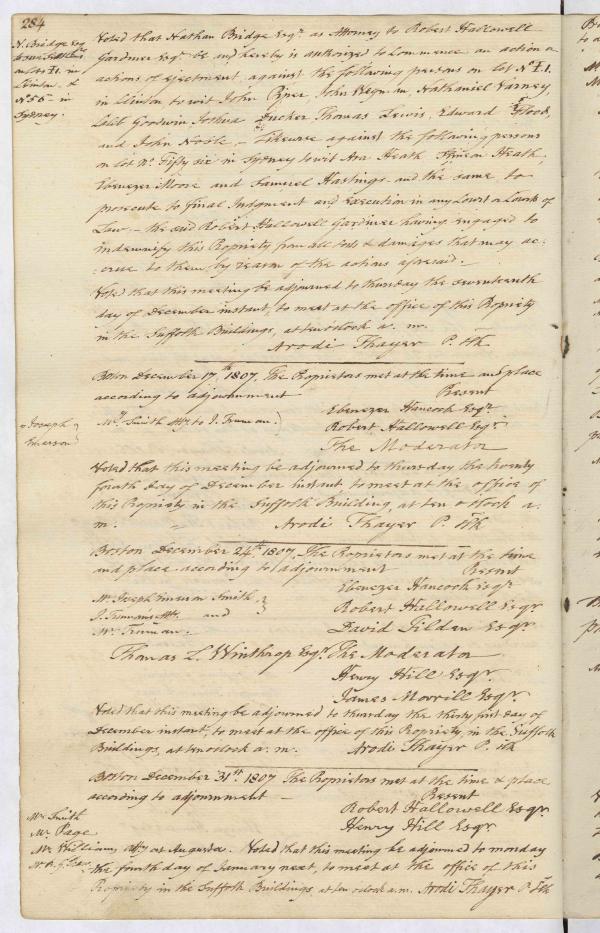 284
N. Bridge Esq
to sue Settlers
on Lots No. 1. in
Clinton. &
No. 56 - in
Sydney.
Voted that Nathan Bridge Esqr. as Attorney to Robert Hallowell
Gardiner Esqr. be and hereby is authorized to commence an action or
actions of ejectment against the following persons on lot No. 1.
in Clinton to wit John Piper, John Wegman, Nathaniel Varney,
Caleb Goodwin, Joshua Tucker Thomas Lewis, Edward Flood,
and John Noble, - Likewise against the following persons
on lot No. Fifty six in Sydney to wit Asa Heath Heath,
Ebenezer Moore and Samuel Hastings and the same to
prosecute to final Judgment and Execution in any Court or Courts of
Law - the said Robert Hallowell Gardiner having engaged to
indemnify this Propriety from all costs & damages that may ac:
:crue to them by reason of the actions aforesaid.
Voted that this meeting be adjourned to thursday the seventeenth
day of December instant, to meet at the office of this Propriety
in the Suffolk Buildings, at ten oclock a. m.
Arodi Thayer P. Clk.
Boston December 17th. 1807. The Proprietors met at the time and place
according to adjournment
Present
Mr. Smith Atty to J. Truman.
Ebenezer Hancock Esqr.
Joseph
Emerson
Robert Hallowell Esqr.
The Moderator
Voted that this meeting be adjourned to thursday the twenty
fourth day of December instant to meet at the office of
this Propriety in the Suffolk Building, at ten oClock a.
m.
Arodi Thayer P. Clk
Boston December 24th 1807, The Proprietors met at the time
and place according to adjournment
Present
Ebenezer Hancock Esqr
Mr. Joseph Emerson Smith
J. Truman's Atty. and
Mr. Truman.
Robert Hallowell Esqr
David Tilden Esqr.
Thomas L. Winthrop Esqr. The Moderator
Henry Hill Esqr.
James Morrill Esqr.
Voted that this meeting be adjourned to thursday the thirty first day of
December instant, to meet at the office of this Propriety, in the Suffolk
Buildings, at ten oclock a. m.
Arodi Thayer P. Clk
Boston December 31st. 1807 The Proprietors met at the time & place
according to adjournment -
Present
Robert Hallowell Esqr.
Henry Hill Esqr
Mr. Smith
Mr. Page
Mr. Williams Atty at Augusta.
Voted that this meeting be adjourned to monday
the fourth day of January next, to meet at the office of this
Propriety in the Suffolk Buildings, at ten oclock a.m. Arodi Thayer P. Clk